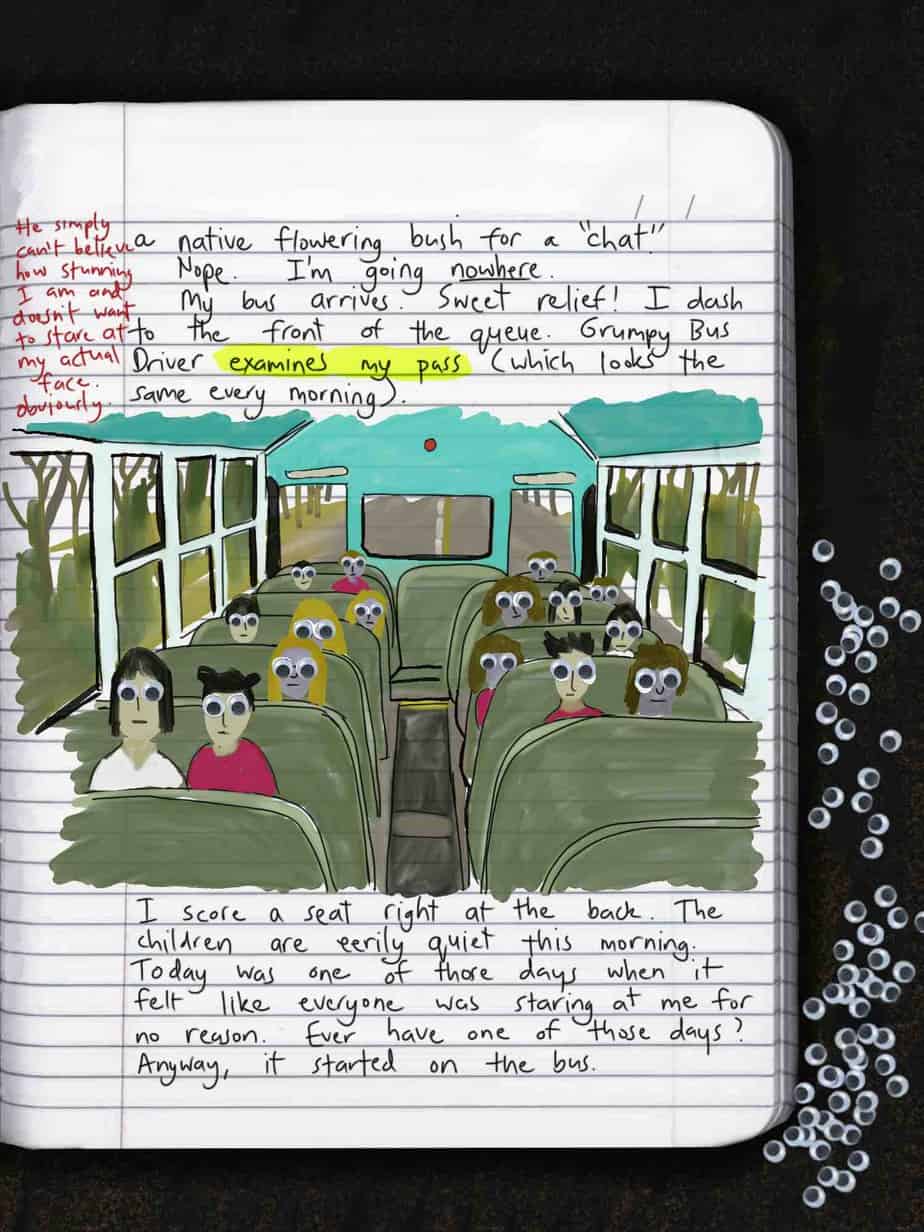 He simply
can't believe
how stunning
I am and
doesn't want
to stare at
my actual
face.
obviously.
a native flowering bush for a "chat"
Nope. I'm going nowhere.
My bus arrives. Sweet relief! I dash
to the front of the queue. Grumpy Bus
Driver examines my pass (which looks the
same every morning).
I score a seat right at the back. The
children are eerily quiet this morning.
Today was one of those days when it
felt like everyone was staring at me for
no reason. Ever have one of those days?
Anyway, it started on the bus.